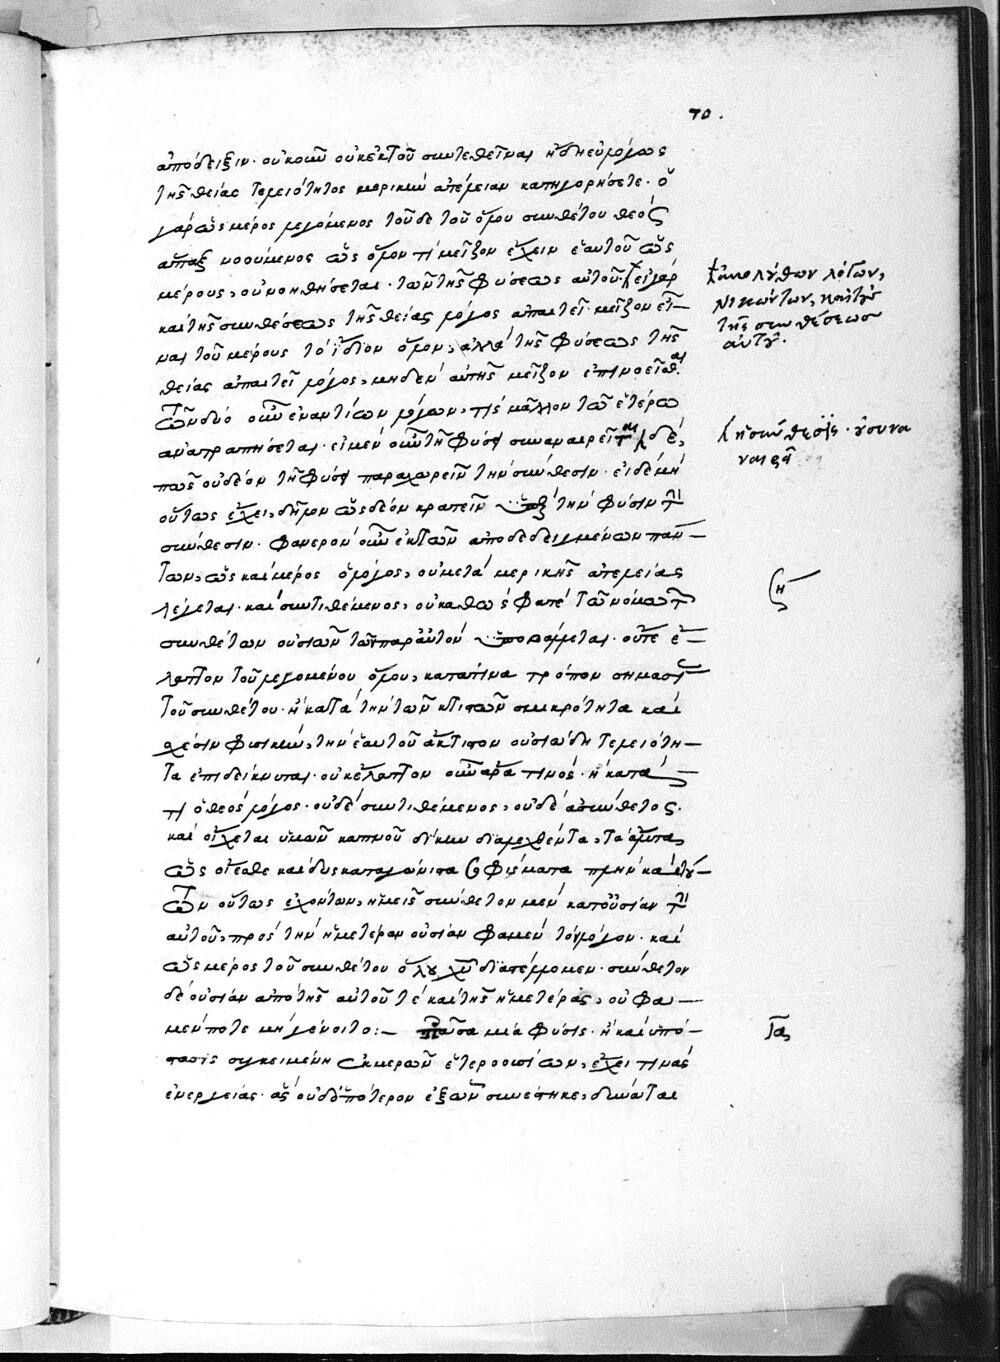 70.
ἀπόδειξιν· οὐκοῦν οὐκ ἐκ τοῦ συντεθεῖναι ἤδη εὐλόγως
τῆς θείας τελειότητος μερικὴν ἀτέλειαν κατηγορήσετε· ὁ
γὰρ ὡς μέρος λεγόμενος τοῦδε τοῦ ὅλου συνθέτου θεὸς
ἅπαξ νοούμενος ὡς ὅλον τί μεῖζον ἔχειν ἑαυτοῦ ὡς
μέρους, οὐ νοηθήσεται· τῶν τῆς φύσεως αὐτοῦ· εἰ γὰρ
καὶ τῆς συνθέσεως τῆς θείας λόγος ἀπαιτεῖ μεῖζον εἶ-
ναι τοῦ μέρους τὸ ἴδιον ὅλον, ἀλλὰ τῆς φύσεως τῆς
θείας ἀπαιτεῖ λόγος, μηδὲν αὐτῆς μεῖζον ἐπινοεῖσθαι
τῶν δύο οὖν ἐναντίων λόγων, τίς μᾶλλον τῶ ἑτέρω
ἀνατραπήσεται· εἰ μὲν οὖν τῇ φύσει συναναιρεῖται δὲ,
πῶς οὐδέον τῇ φύσει παραχωρεῖν τὴν σύνθεσιν· εἰ δὲ μὴ
οὕτως ἔχει, δῆλον ὡς δέον κρατεῖν τὴν φύσιν τὴν
σύνθεσιν· φανερὸν οὖν ἐκ τῶν ἀποδεδειγμένων πάν-
των, ὡς καὶ μέρος ὁ λόγος, οὐ μετὰ μερικῆς ἀτελείας
λέγεται· καὶ συντιθέμενος, οὐ καθὼς φατὲ τῶ νόμω τῶν
συνθέτων οὐσιῶν τῶν παρ' αὐτὸν ὑποβάλλεται· οὔτε ἔ-
λαττον τοῦ λεγομένου ὅλου, κατά τινα τρόπον σημασίας
τοῦ συνθέτου· ἢ κατὰ τὴν τῶν κτιστῶν σμικρότητα καὶ
σχέσιν φυσικὴν, τὴν ἑαυτοῦ ἄκτιστον οὐσιώδη τελειότη-
τα ἐπιδείκνυται· οὐκ ἔλαττον οὖν ἄρα τινός· ἢ κατά
τι ὁ θεὸς λόγος· οὐδὲ συντιθέμενος, οὐδὲ ἀσύνθετος·
καὶ οἴχεται ὑμῶν καπνοῦ δίκην διαλεχθέντα, τὰ ἄλυτα,
ὡς οἴεσθε καὶ δυσκαταγώνιστα σοφίσματα
τῶν οὕτως ἐχόντων, ἡμεῖς σύνθετον μὲν κατ' οὐσίαν τὴν
αὐτοῦ, πρὸς τὴν ἡμετέραν οὐσίαν φαμὲν τὸν λόγον· καὶ
ὡς μέρος τοῦ συνθέτου ὅλου χριστοῦ διαγγέλλομεν· σύνθετον
δὲ οὐσίαν ἀπὸ τῆς αὐτοῦ τὲ καὶ τῆς ἡμετέρας, οὔ φα-
μέν ποτε μὴ γένοιτο:- πᾶσα μία φύσις· ἢ καὶ ὑπό-
στασις συγκειμένη ἐκ μερῶν ἑτεροουσίων, ἔχει τινὰς
ἐνεργείας· ἃς οὐδ' ὁπότερον ἐξ ὧν συνέστηκε, δύναται
ἀπολύθων λόγων,
νικώντων, κατ' αὐτοῦ
τῆς συνθέσεως
αὐτοῦ.
ἡ σύνθεσις·
ση
τας